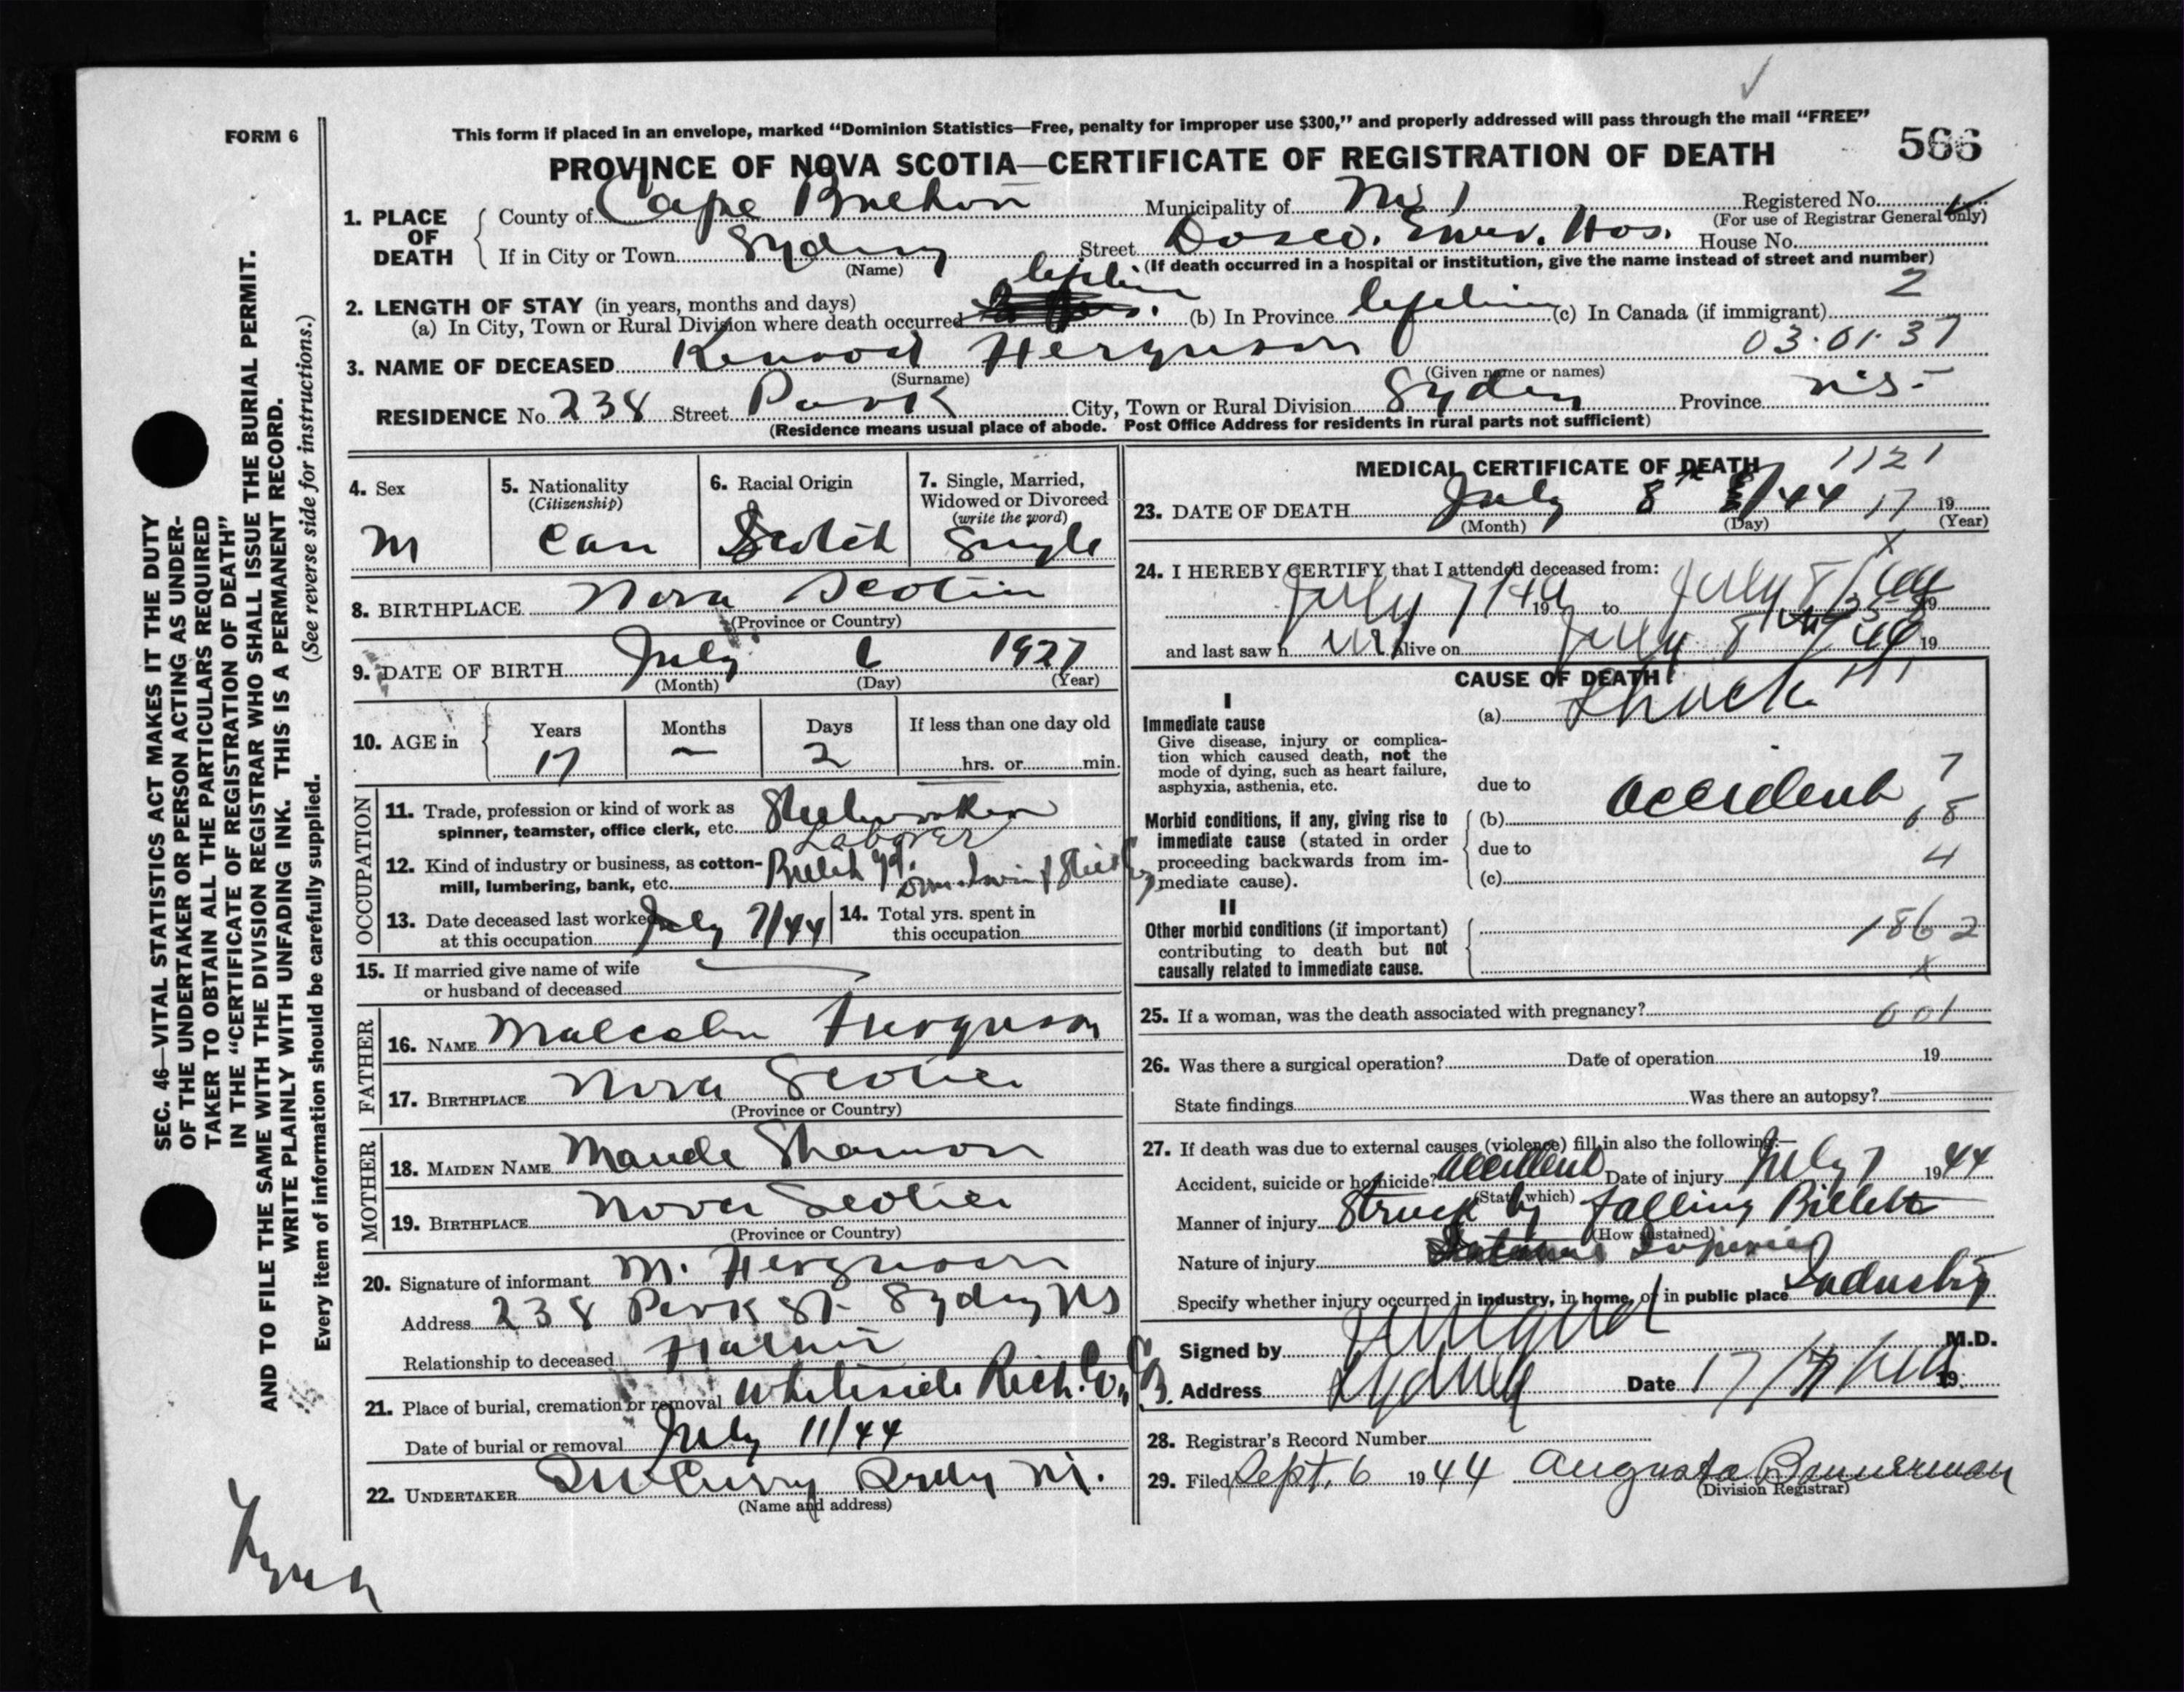 FORM 6
This form if placed in an envelope, marked “Dominion Statistics—Free, penalty for improper use $300,” and properly addressed will pass through the mail “FREE”
566
PROVINCE OF NOVA SCOTIA—CERTIFICATE OF REGISTRATION OF DEATH
1. PLACE OF DEATH
County of Cape Breton Municipality of Registered No.
(For use of Registrar General only)
If in City or Town Sydney Street Dosco. Emer. Hos. House No.
(Name) (If death occurred in a hospital or institution, give the name instead of street and number)
2. LENGTH OF STAY (in years, months and days)
(a) In City, Town or Rural Division where death occurred lifetime (b) In Province lifetime (c) In Canada (if immigrant) 2
3. NAME OF DECEASED Ferguson 03.01.37
(Surname) (Given name or names)
RESIDENCE No. 238 Street Park City, Town or Rural Division Sydney Province N.S.
(Residence means usual place of abode. Post Office Address for residents in rural parts not sufficient)
4. Sex
M
5. Nationality
(Citizenship)
Can
6. Racial Origin
Scotch
7. Single, Married,
Widowed or Divorced
(write the word)
Single
8. BIRTHPLACE Nova Scotia
(Province or Country)
9. DATE OF BIRTH July 6 1927
(Month) (Day) (Year)
10. AGE in
Years Months Days If less than one day old
17 — 2 hrs. or min.
OCCUPATION
11. Trade, profession or kind of work as
spinner, teamster, office clerk, etc. Steelworker
Laborer
12. Kind of industry or business, as cotton-
mill, lumbering, bank, etc.
13. Date deceased last worked
at this occupation July 7/44
14. Total yrs. spent in
this occupation
15. If married give name of wife
or husband of deceased
FATHER
16. NAME Malcolm Ferguson
17. BIRTHPLACE Nova Scotia
(Province or Country)
MOTHER
18. MAIDEN NAME Maude
19. BIRTHPLACE Nova Scotia
(Province or Country)
20. Signature of informant M. Ferguson
Address 238 Park St. Sydney NS
Relationship to deceased Father
21. Place of burial, cremation or removal Whiteside Rich. Co., C.B.
Date of burial or removal July 11/44
22. UNDERTAKER
(Name and address)
MEDICAL CERTIFICATE OF DEATH 1121
23. DATE OF DEATH July 8th /44 17 19
(Month) (Day) (Year)
24. I HEREBY CERTIFY that I attended deceased from:
July 7/44 19 to July 8/44 19
and last saw h im alive on July 8 /44 19
CAUSE OF DEATH
I
Immediate cause
Give disease, injury or complica-
tion which caused death, not the
mode of dying, such as heart failure,
asphyxia, asthenia, etc.
(a) Shock
due to
7
Morbid conditions, if any, giving rise to
immediate cause (stated in order
proceeding backwards from im-
mediate cause).
(b) Accident 68
due to
4
(c)
II
Other morbid conditions (if important)
contributing to death but not
causally related to immediate cause.
1862
x
25. If a woman, was the death associated with pregnancy? 601
26. Was there a surgical operation? Date of operation 19
State findings Was there an autopsy?
27. If death was due to external causes (violence) fill in also the following:—
Accident, suicide or homicide? Accident Date of injury July 7 1944
(State which)
Manner of injury Struck by falling Billets
(How sustained)
Nature of injury
Specify whether injury occurred in industry, in home, or in public place Industry
Signed by M.D.
Address Sydney Date 17/7/44 19
28. Registrar's Record Number
29. Filed Sept. 6 1944 Augusta Bannerman
(Division Registrar)
SEC. 46—VITAL STATISTICS ACT MAKES IT THE DUTY
OF THE UNDERTAKER OR PERSON ACTING AS UNDER-
TAKER TO OBTAIN ALL THE PARTICULARS REQUIRED
IN THE “CERTIFICATE OF REGISTRATION OF DEATH”
AND TO FILE THE SAME WITH THE DIVISION REGISTRAR WHO SHALL ISSUE THE BURIAL PERMIT.
WRITE PLAINLY WITH UNFADING INK. THIS IS A PERMANENT RECORD.
Every item of information should be carefully supplied. (See reverse side for instructions.)